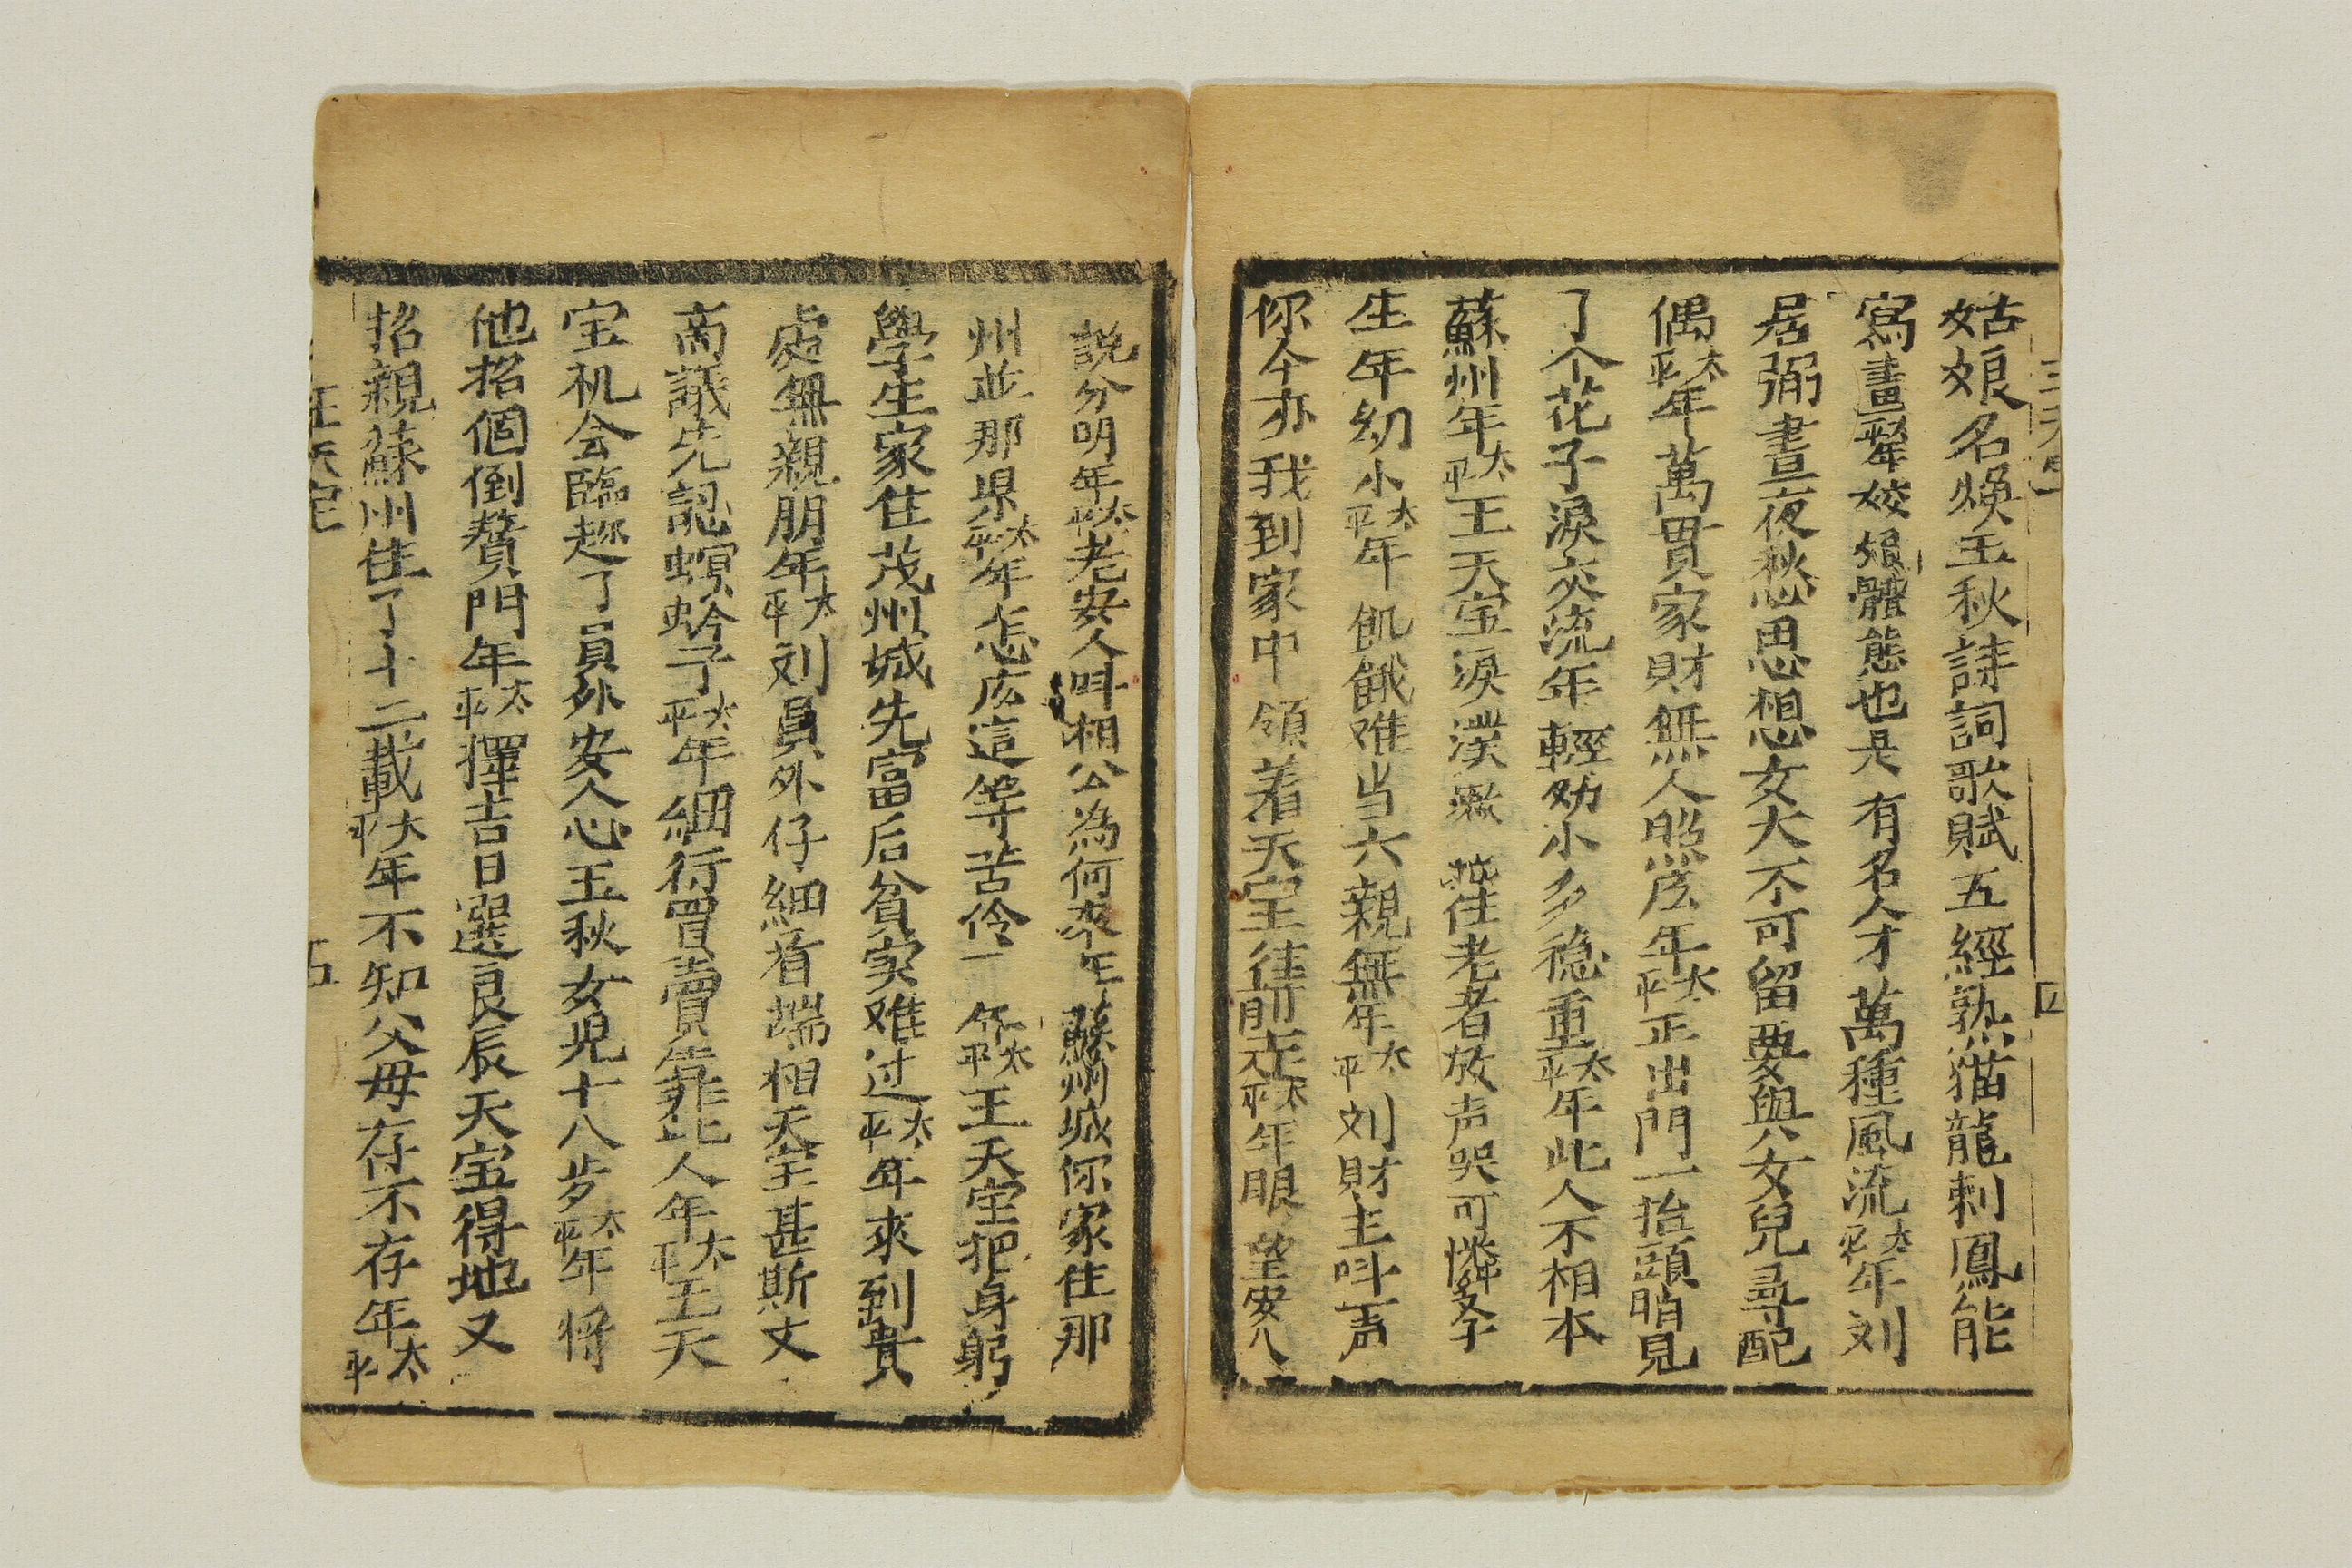 姑娘名煥玉秋詩詞歌賦五經熟猫龍刺鳳能
寫畫年姣娘體態也是有名人才萬種風流太平年刘
居弼晝夜愁思想女大不可留要與女兒尋配
偶太平年萬貫家財無人照应年太平正出門一抬頭睄見
了个花子淚交流年輕幼小多稳重太平年此人不相本
蘇州年太平王天宝淚濮往老者放声哭可憐
生年幼小太平年飢餓难当六親無年太平刘財主呌一声
你今亦我到家中領着天宝往前走太平年眼望安人
説分明年太平老安人呌相公為何來年蘇州城你家住那
州並那県太平年怎庅這等苦伶一年太平王天宝把身躬
學生家住茂州城先富后貧实难过太平年來到貴
處無親朋年太平刘員外仔細看端相天宝甚斯文
商議先認螟蛉子太平年細行買賣靠此人年太平王天
宝机会臨趂了員外安人心玉秋女児十八步太平年将
他招個倒贅門年太平擇吉日選良辰天宝得地又
招親蘇州住了十二載太平年不知父母存不存年太平
王天宝
五